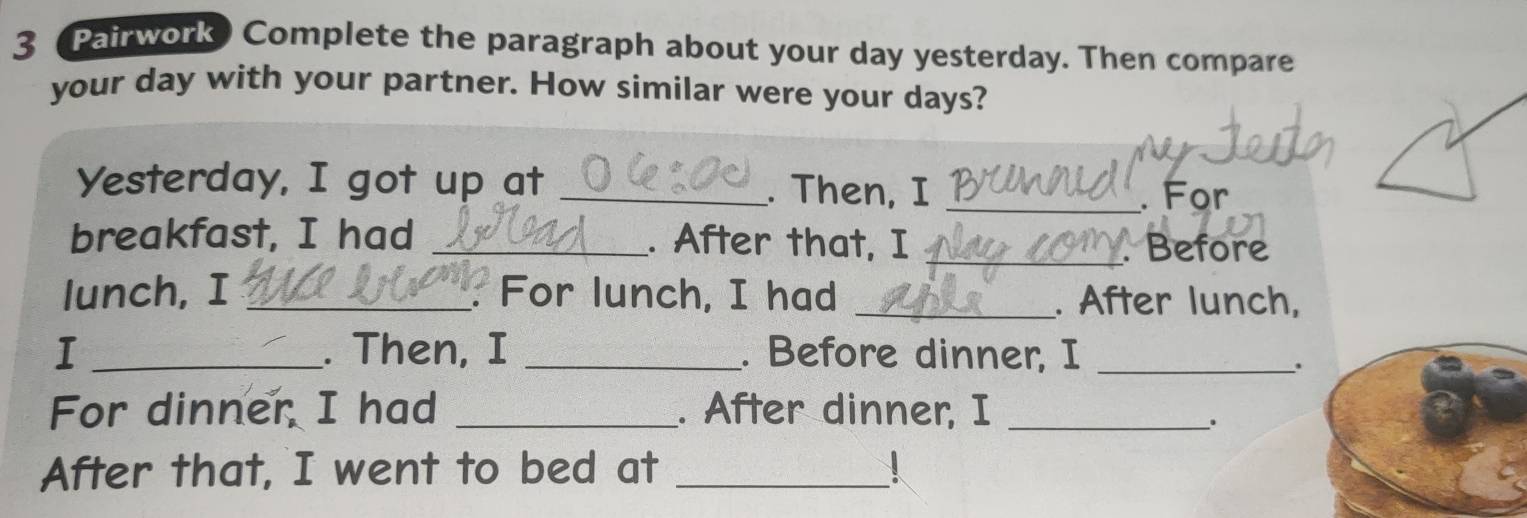 3 Pairwork Complete the paragraph about your day yesterday. Then compare
your day with your partner. How similar were your days?
my
Yesterday, I got up at 06:00. Then, I. For
breakfast, I had bread. After that, I play com. Before
lunch, I. For lunch, I had aple. After lunch,
I ________. Then, I ________. Before dinner, I ________.
For dinner, I had ________. After dinner, I ________.
After that, I went to bed at ________!